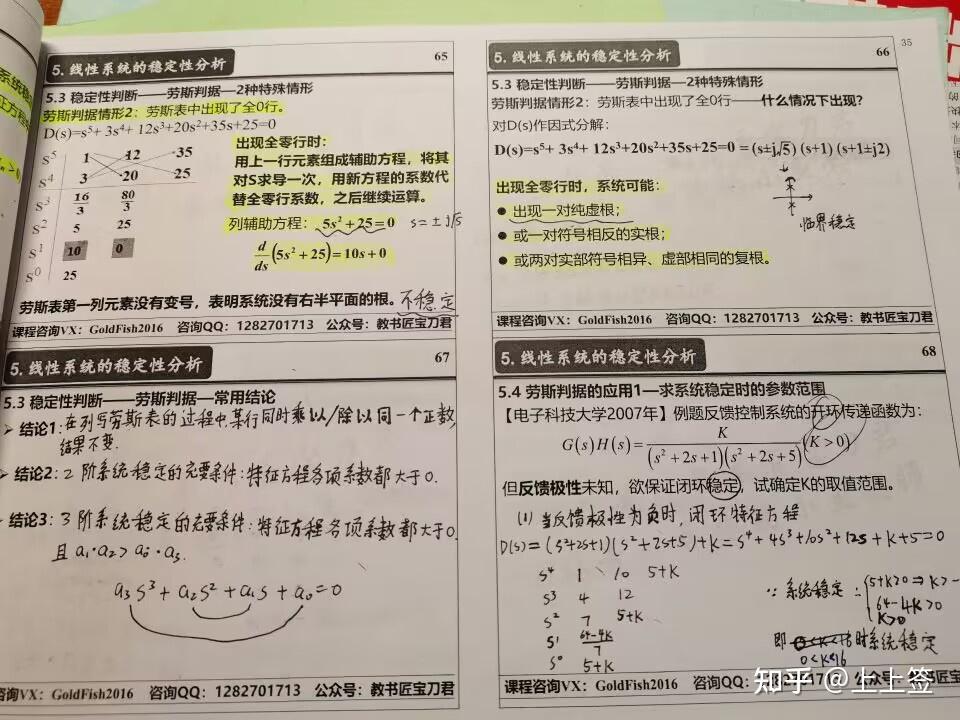 5. 线性系统的稳定性分析
65
5.3 稳定性判断——劳斯判据—2种特殊情形
劳斯判据情形2：劳斯表中出现了全0行。
D(s)=s⁵+ 3s⁴+ 12s³+20s²+35s+25=0
S⁵ 1 12 35
S⁴ 3 20 25
S³ 16/3 80/3
S² 5 25
S¹ 10 0
S⁰ 25
出现全零行时：
用上一行元素组成辅助方程，将其
对S求导一次，用新方程的系数代
替全零行系数，之后继续运算。
列辅助方程：5s²+25=0 s=±j√5
d/ds(5s²+25)=10s+0
劳斯表第一列元素没有变号，表明系统没有右半平面的根。不稳定
课程咨询VX：GoldFish2016 咨询QQ：1282701713 公众号：教书匠宝刀君
5. 线性系统的稳定性分析
66
35
5.3 稳定性判断——劳斯判据—2种特殊情形
劳斯判据情形2：劳斯表中出现了全0行——什么情况下出现？
对D(s)作因式分解：
D(s)=s⁵+ 3s⁴+ 12s³+20s²+35s+25=0 = (s±j√5) (s+1) (s+1±j2)
出现全零行时，系统可能：
● 出现一对纯虚根；
● 或一对符号相反的实根；
● 或两对实部符号相异、虚部相同的复根。
临界稳定
课程咨询VX：GoldFish2016 咨询QQ：1282701713 公众号：教书匠宝刀君
5. 线性系统的稳定性分析
67
5.3 稳定性判断——劳斯判据—常用结论
结论1：在列写劳斯表的过程中,某行同时乘以/除以同一个正数,
结果不变.
结论2：2阶系统稳定的充要条件：特征方程各项系数都大于0.
结论3：3阶系统稳定的充要条件：特征方程各项系数都大于0.
且 a₁·a₂>a₀·a₃.
a₃s³+a₂s²+a₁s+a₀=0
咨询VX：GoldFish2016 咨询QQ：1282701713 公众号：教书匠宝刀君
5. 线性系统的稳定性分析
68
5.4 劳斯判据的应用1—求系统稳定时的参数范围
【电子科技大学2007年】例题反馈控制系统的开环传递函数为：
G(s)H(s)=K/((s²+2s+1)(s²+2s+5))(K>0)
但反馈极性未知，欲保证闭环稳定，试确定K的取值范围。
(1) 当反馈极性为负时,闭环特征方程
D(s)=(s²+2s+1)(s²+2s+5)+K=s⁴+4s³+10s²+12s+K+5=0
s⁴ 1 10 5+K
s³ 4 12
s² 7 5+K
s¹ 64-4K/7
s⁰ 5+K
∵系统稳定 ∴ 5+K>0⇒K>-
64-4K>0
K>0
即 时系统稳定
0<K<16
课程咨询VX：GoldFish2016 咨询QQ：1282701713 公众号：教书匠宝刀君
知乎 @上上签